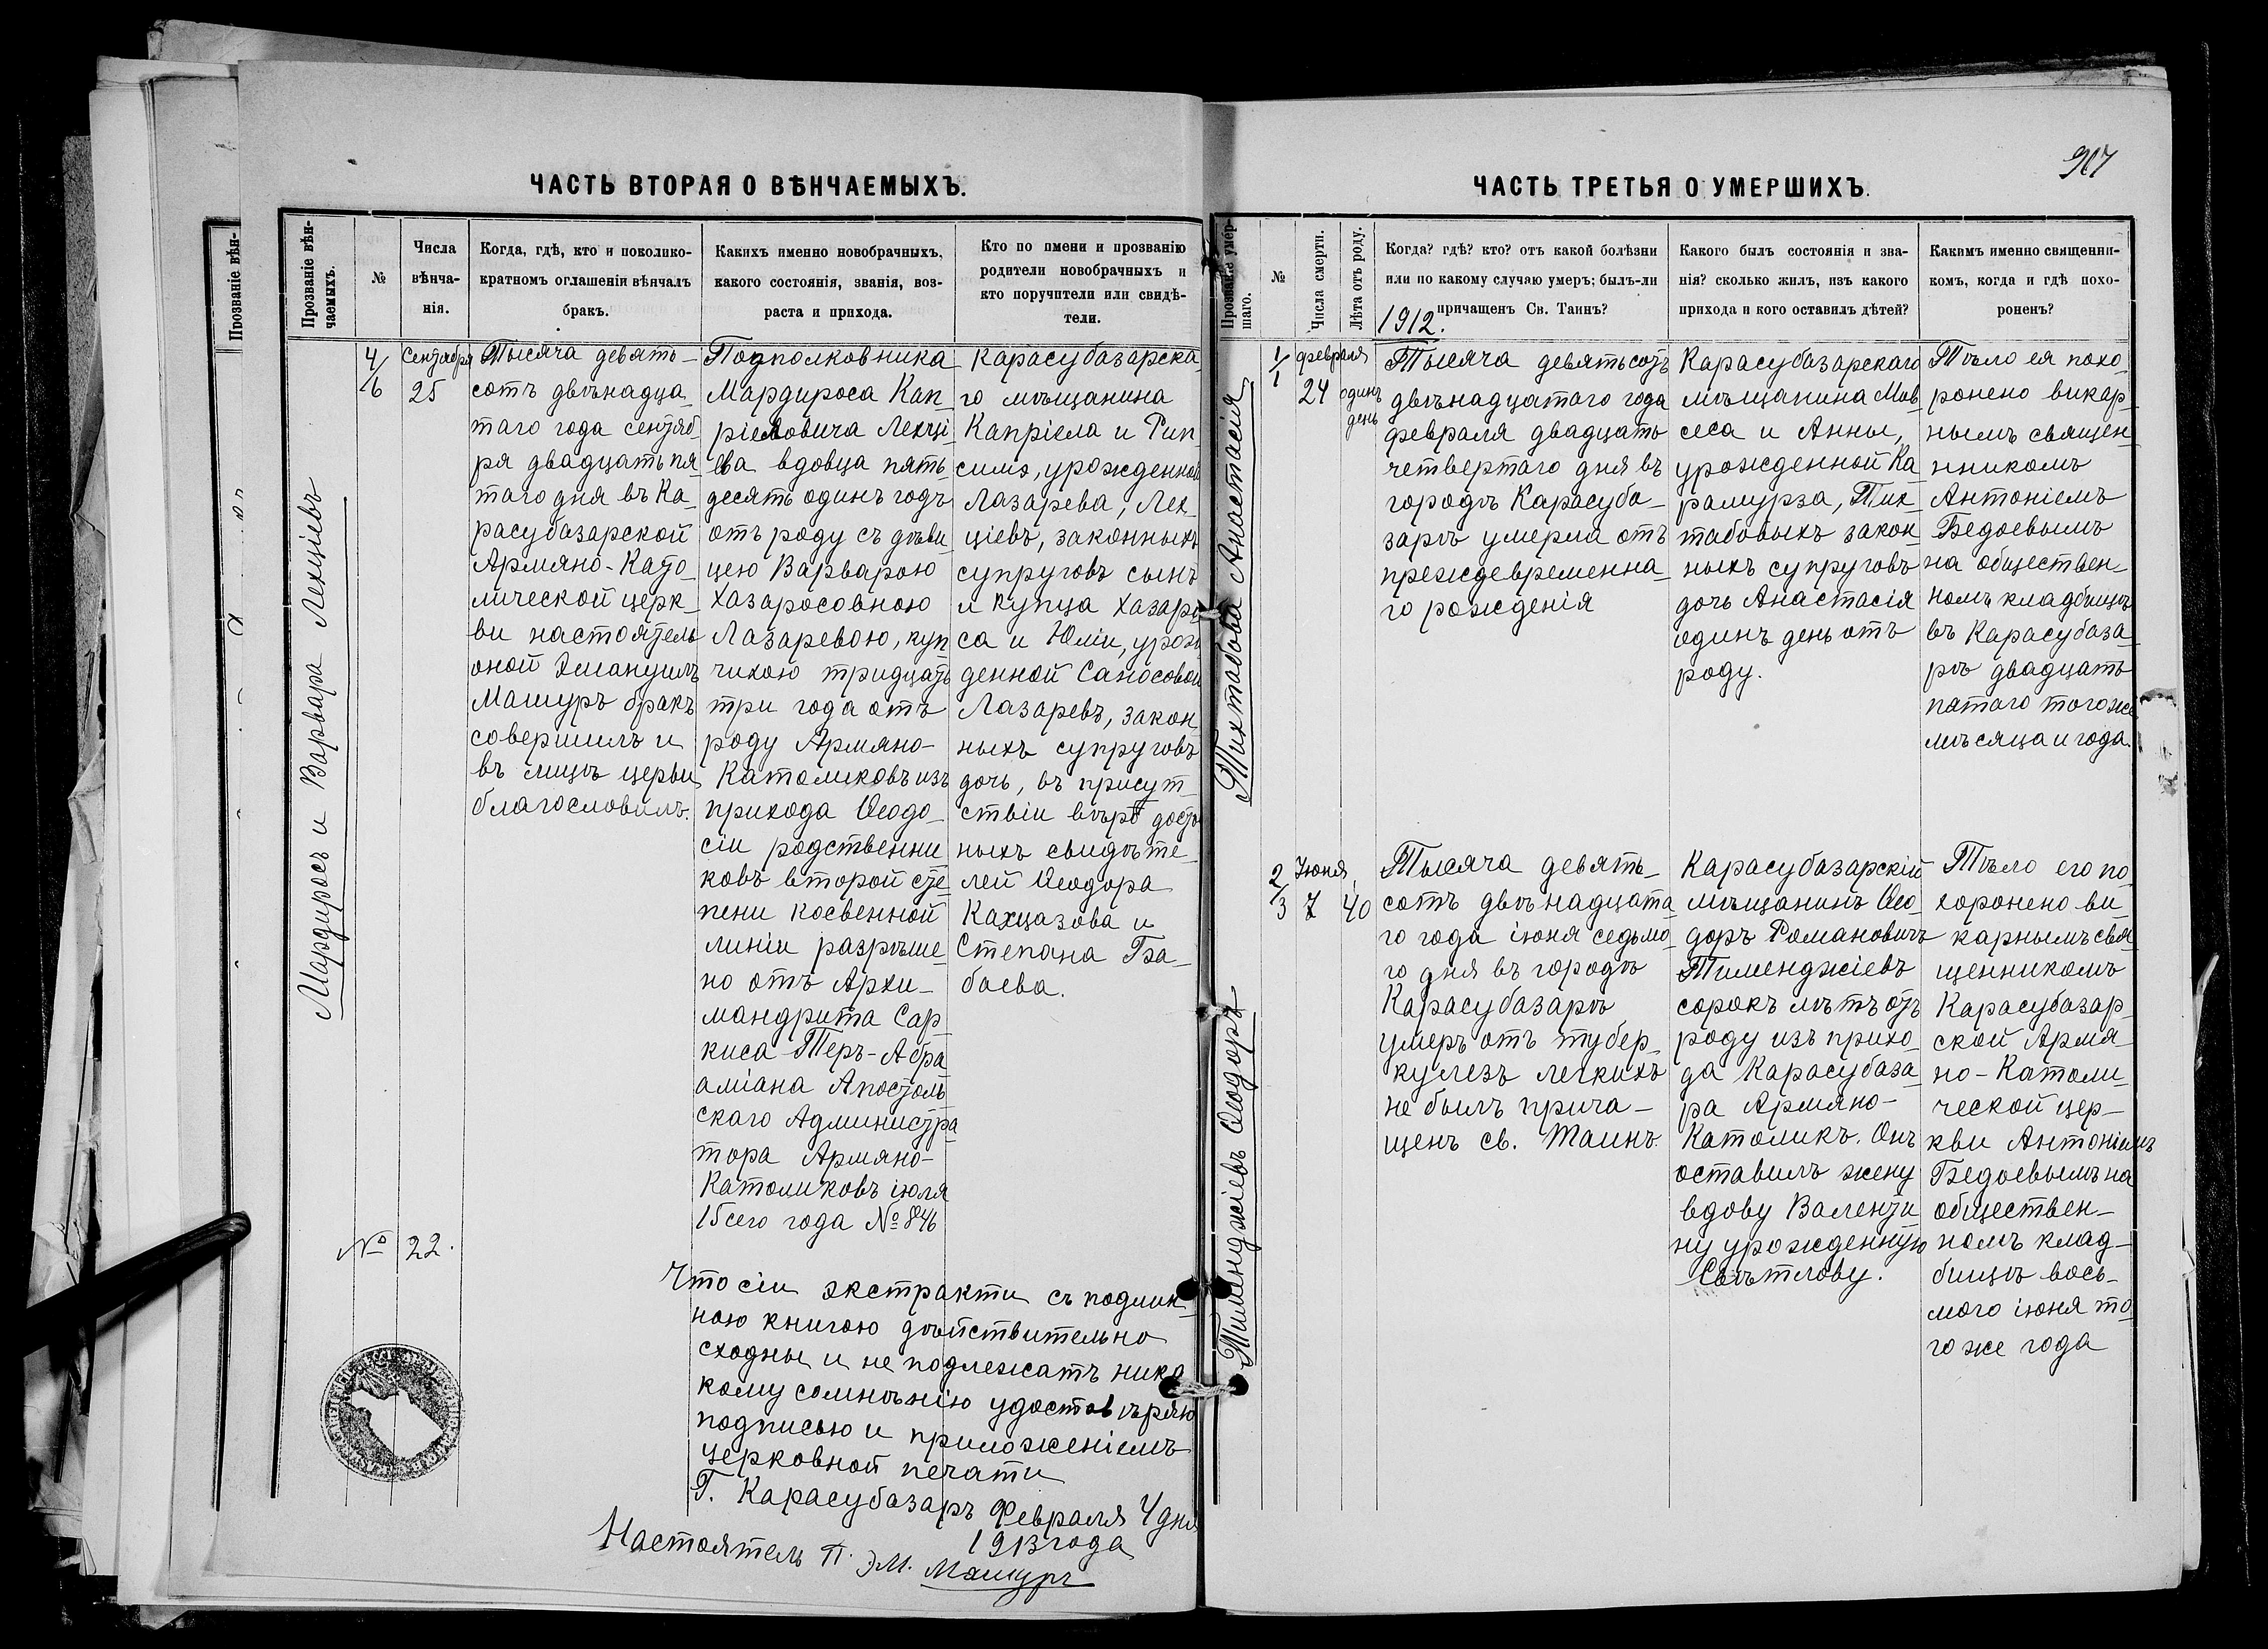 ЧАСТЬ ВТОРАЯ О ВѢНЧАЕМЫХЪ.
Прозваніе вѣн-
Прозваніе вѣн-
чаемыхъ.
№
Числа
вѣнча-
нія.
Когда, гдѣ, кто и поколико-
кратномъ оглашеніи вѣнчалъ
бракъ.
Какихъ именно новобрачныхъ,
какого состоянія, званія, воз-
раста и прихода.
Кто по имени и прозванію
родители новобрачныхъ и
кто поручители или свидѣ-
тели.
Мардиросъ и Варвара Лехціевъ
4/6
Сентября
25
Тысяча девять-
сотъ двѣнадца-
таго года сентяб-
ря двадцать пя-
таго дня въ Ка-
расубазарской
Армяно-Като-
лической церк-
ви настоятель
оной Эмануилъ
Машуръ бракъ
совершилъ и
въ лицѣ церкви
благословилъ.
Подполковника
Мардироса Кап-
ріеловича Лехці-
ева вдовца пять-
десять одинъ годъ
отъ роду съ дѣви-
цею Варварою
Хазаросовною
Лазаревою, куп-
чихою тридцать
три года отъ
роду Армяно-
Католиковъ изъ
прихода Ѳеодо-
сіи родственни
ковъ второй сте
пени косвенной
линіи разрѣше-
но отъ Архи-
мандрита Сар-
киса Теръ-Абра
аміана Апостоль
скаго Администра-
тора Армяно-
Католиковъ іюля
15 сего года № 846
Карасубазарска-
го мѣщанина
Капріела и Рип-
симэ, урожденной
Лазарева, Лех-
ціевъ, законныхъ
супруговъ сынъ
и купца Хазаро
са и Юліи, урож
денной Саносовой
Лазаревъ, закон
ныхъ супруговъ
дочь, въ присут-
ствіи вѣро досто
ныхъ свидѣте-
лей Ѳеодора
Кахцазова и
Степана Ба-
баева.
№ 22.
Что сіи экстракти съ подлин-
ною книгою дѣйствительно
сходны и не подлежатъ ника
кому сомнѣнію удостовѣряю
подписью и приложеніемъ
церковной печати
Г. Карасубазаръ Февраля 4 дня
1913 года
Настоятель П. ЭМ. Машуръ
907
ЧАСТЬ ТРЕТЬЯ О УМЕРШИХЪ.
Прозваніе умер-
шаго.
№
Числа смерти.
Лѣта отъ роду.
Когда? гдѣ? кто? отъ какой болѣзни
или по какому случаю умеръ; былъ-ли
причащенъ Св. Таинъ?
1912.
Какого былъ состоянія и зва-
нія? сколько жилъ, изъ какого
прихода и кого оставилъ дѣтей?
Какимъ именно священни-
комъ, когда и гдѣ похо-
роненъ?
Тихтабова Анастасія
1/1
февраля
24
одинъ
день
Тысяча девятьсотъ
двѣнадцатаго года
февраля двадцать
четвертаго дня въ
городѣ Карасуба-
зарѣ умерла отъ
преждевременна-
го рожденія
Карасубазарскаго
мѣщанина Мов-
сеса и Анны,
урожденной Ка
рамурза, Тих-
табовыхъ закон-
ныхъ супруговъ
дочь Анастасія
одинъ день отъ
роду.
Тѣло ея похо-
ронено викар-
нымъ священ-
нникомъ
Антоніемъ
Бедоевымъ
на обществен-
номъ кладбищѣ
въ Карасубаза-
рѣ двадцать
пятаго того же
мѣсяца и года.
Тименджіевъ Ѳеодоръ
2/3
Іюня
7
40
Тысяча девять-
сотъ двѣнадцата-
го года іюня седьмо-
го дня въ городѣ
Карасубазарѣ
умеръ отъ тубер-
кулезъ легкихъ
не былъ прича-
щенъ св. Таинъ.
Карасубазарскій
мѣщанинъ Ѳео-
доръ Романовичъ
Тименджіевъ
сорокъ лѣтъ отъ
роду изъ прихо-
да Карасубаза-
ра Армяно-
Католикъ. Онъ
оставилъ жену
вдову Валенти
ну урожденную
Свѣтлову.
Тѣло его по-
хоронено ви-
карнымъ свя-
щенникомъ
Карасубазар-
ской Армя-
но-Католи-
ческой цер-
кви Антоніемъ
Бедоевымъ на
обществен-
номъ клад-
бищѣ вось-
мого іюня то-
го же года